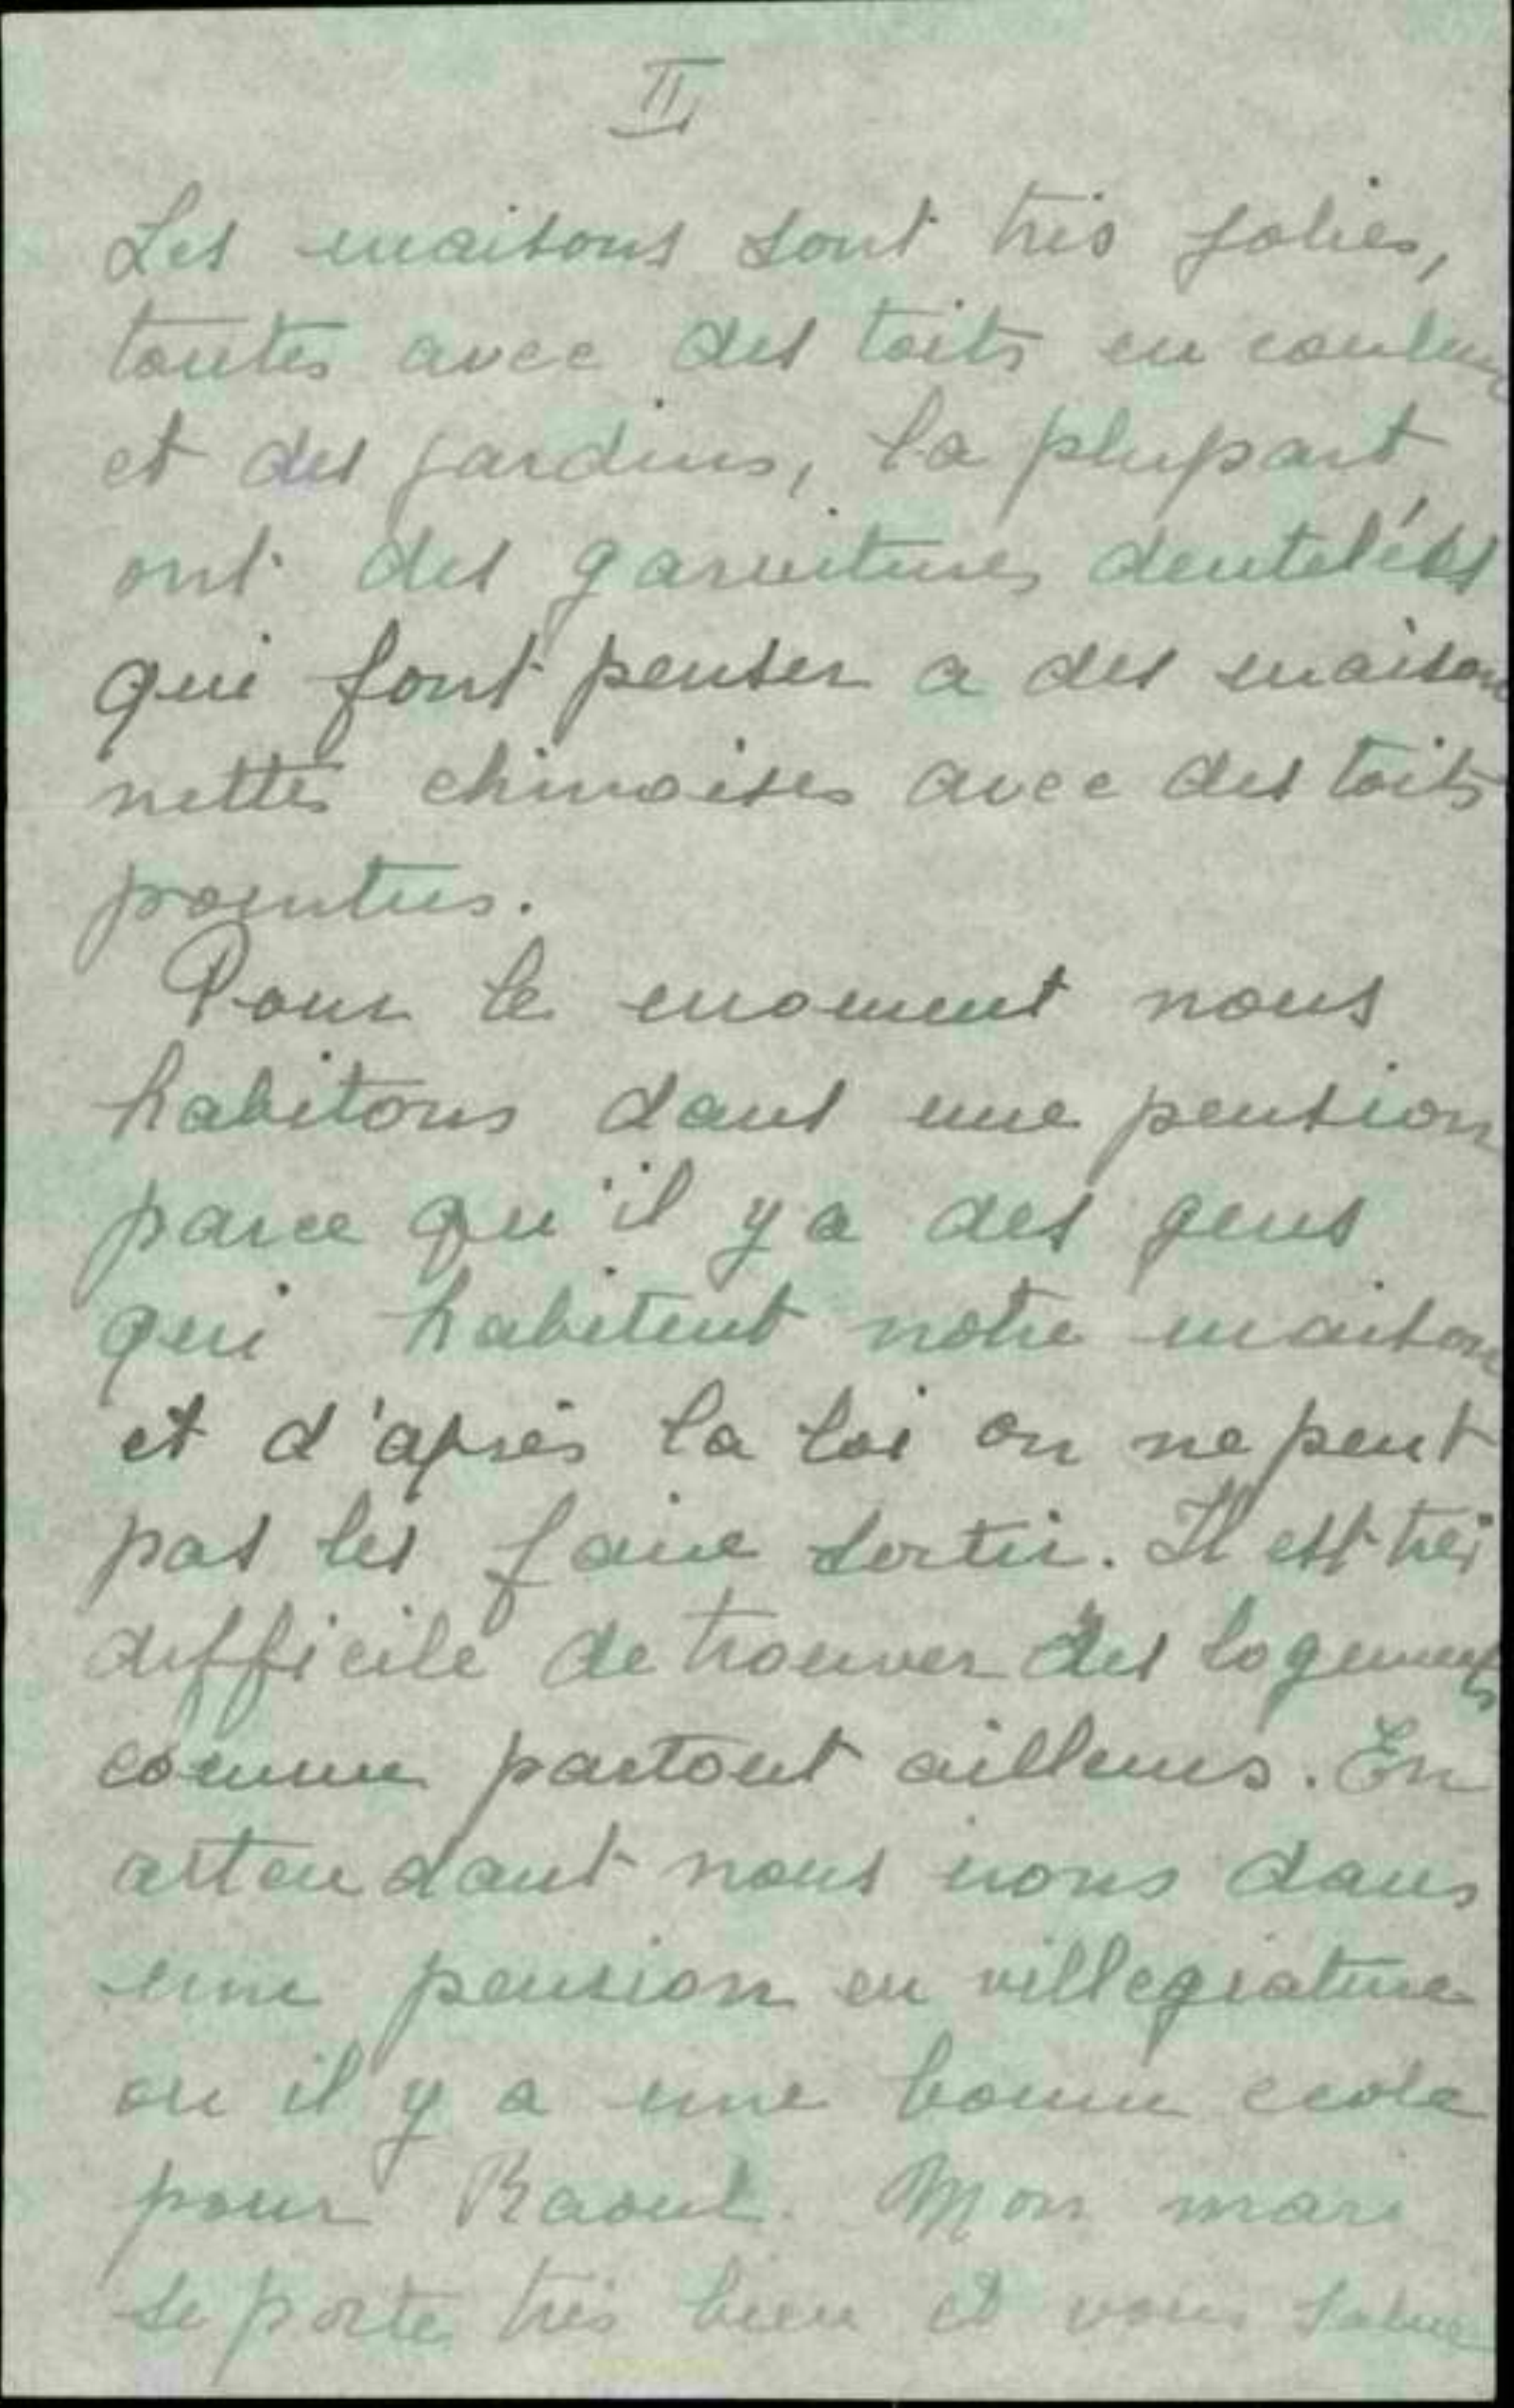 II
Les maisons sont très jolies,
toutes avec des toits en couleur
et des jardins, la plupart
ont des garnitures dentelées
qui font penser a des maison
nettes chinoises avec des toits
pointus.
Pour le moment nous
habitons dans une pension
parce qu'il y a des gens
qui habitent notre maison
et d'après la loi on ne peut
pas les faire sortir. Il est très
difficile de trouver des logements
comme partout ailleurs. En
attendant nous irons dans
une pension en villegiature
ou il y a une bonne ecole
pour Raoul. Mon mari
se porte très bien et vous salue